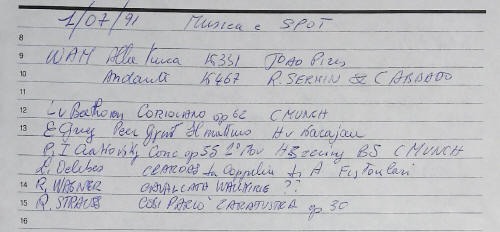 1/07/91 Musica e SPOT
8
9 WAM Alla Turca K331 JOAO Pires
10 Andante K467 R. SERKIN & C ABBADO
12 L v Bethoven CORIOLANO op 62 C MUNCH
13 E Grieg Peer Gynt Il mattino H v Karajan
P. I Ciaikovsky Conc op 35 1° Mov BS C MUNCH
L. Delibes CZARDAS da Coppelia A Fistoulari
14 R. WAGNER CAVALCATA WALKIRIE ??
15 R. STRAUSS COSI PARLO' ZARATUSTRA op 30
16